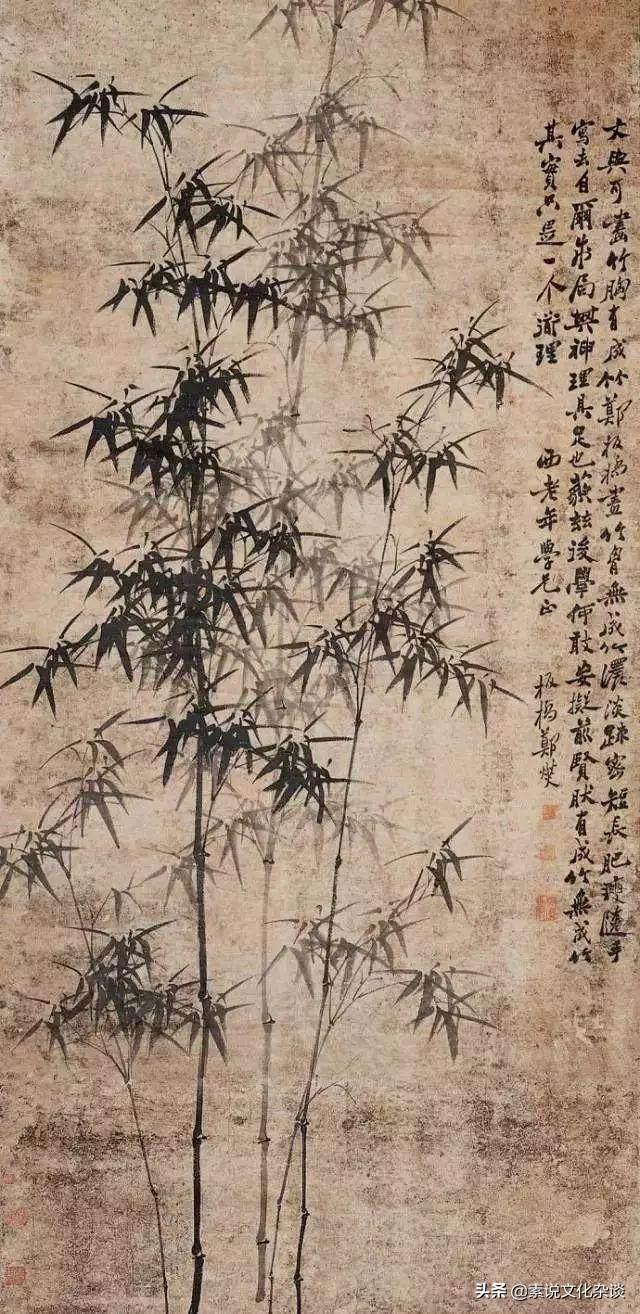 文與可畫竹胸有成竹鄭板橋畫竹胸無成竹濃淡疎密短長肥瘦隨手
寫去自爾成局其神理具足也藐兹後學何敢妄擬前賢肰有成竹無成竹
其實只是一个道理
酉老年學兄正
板橋鄭燮
头条 @素说文化杂谈